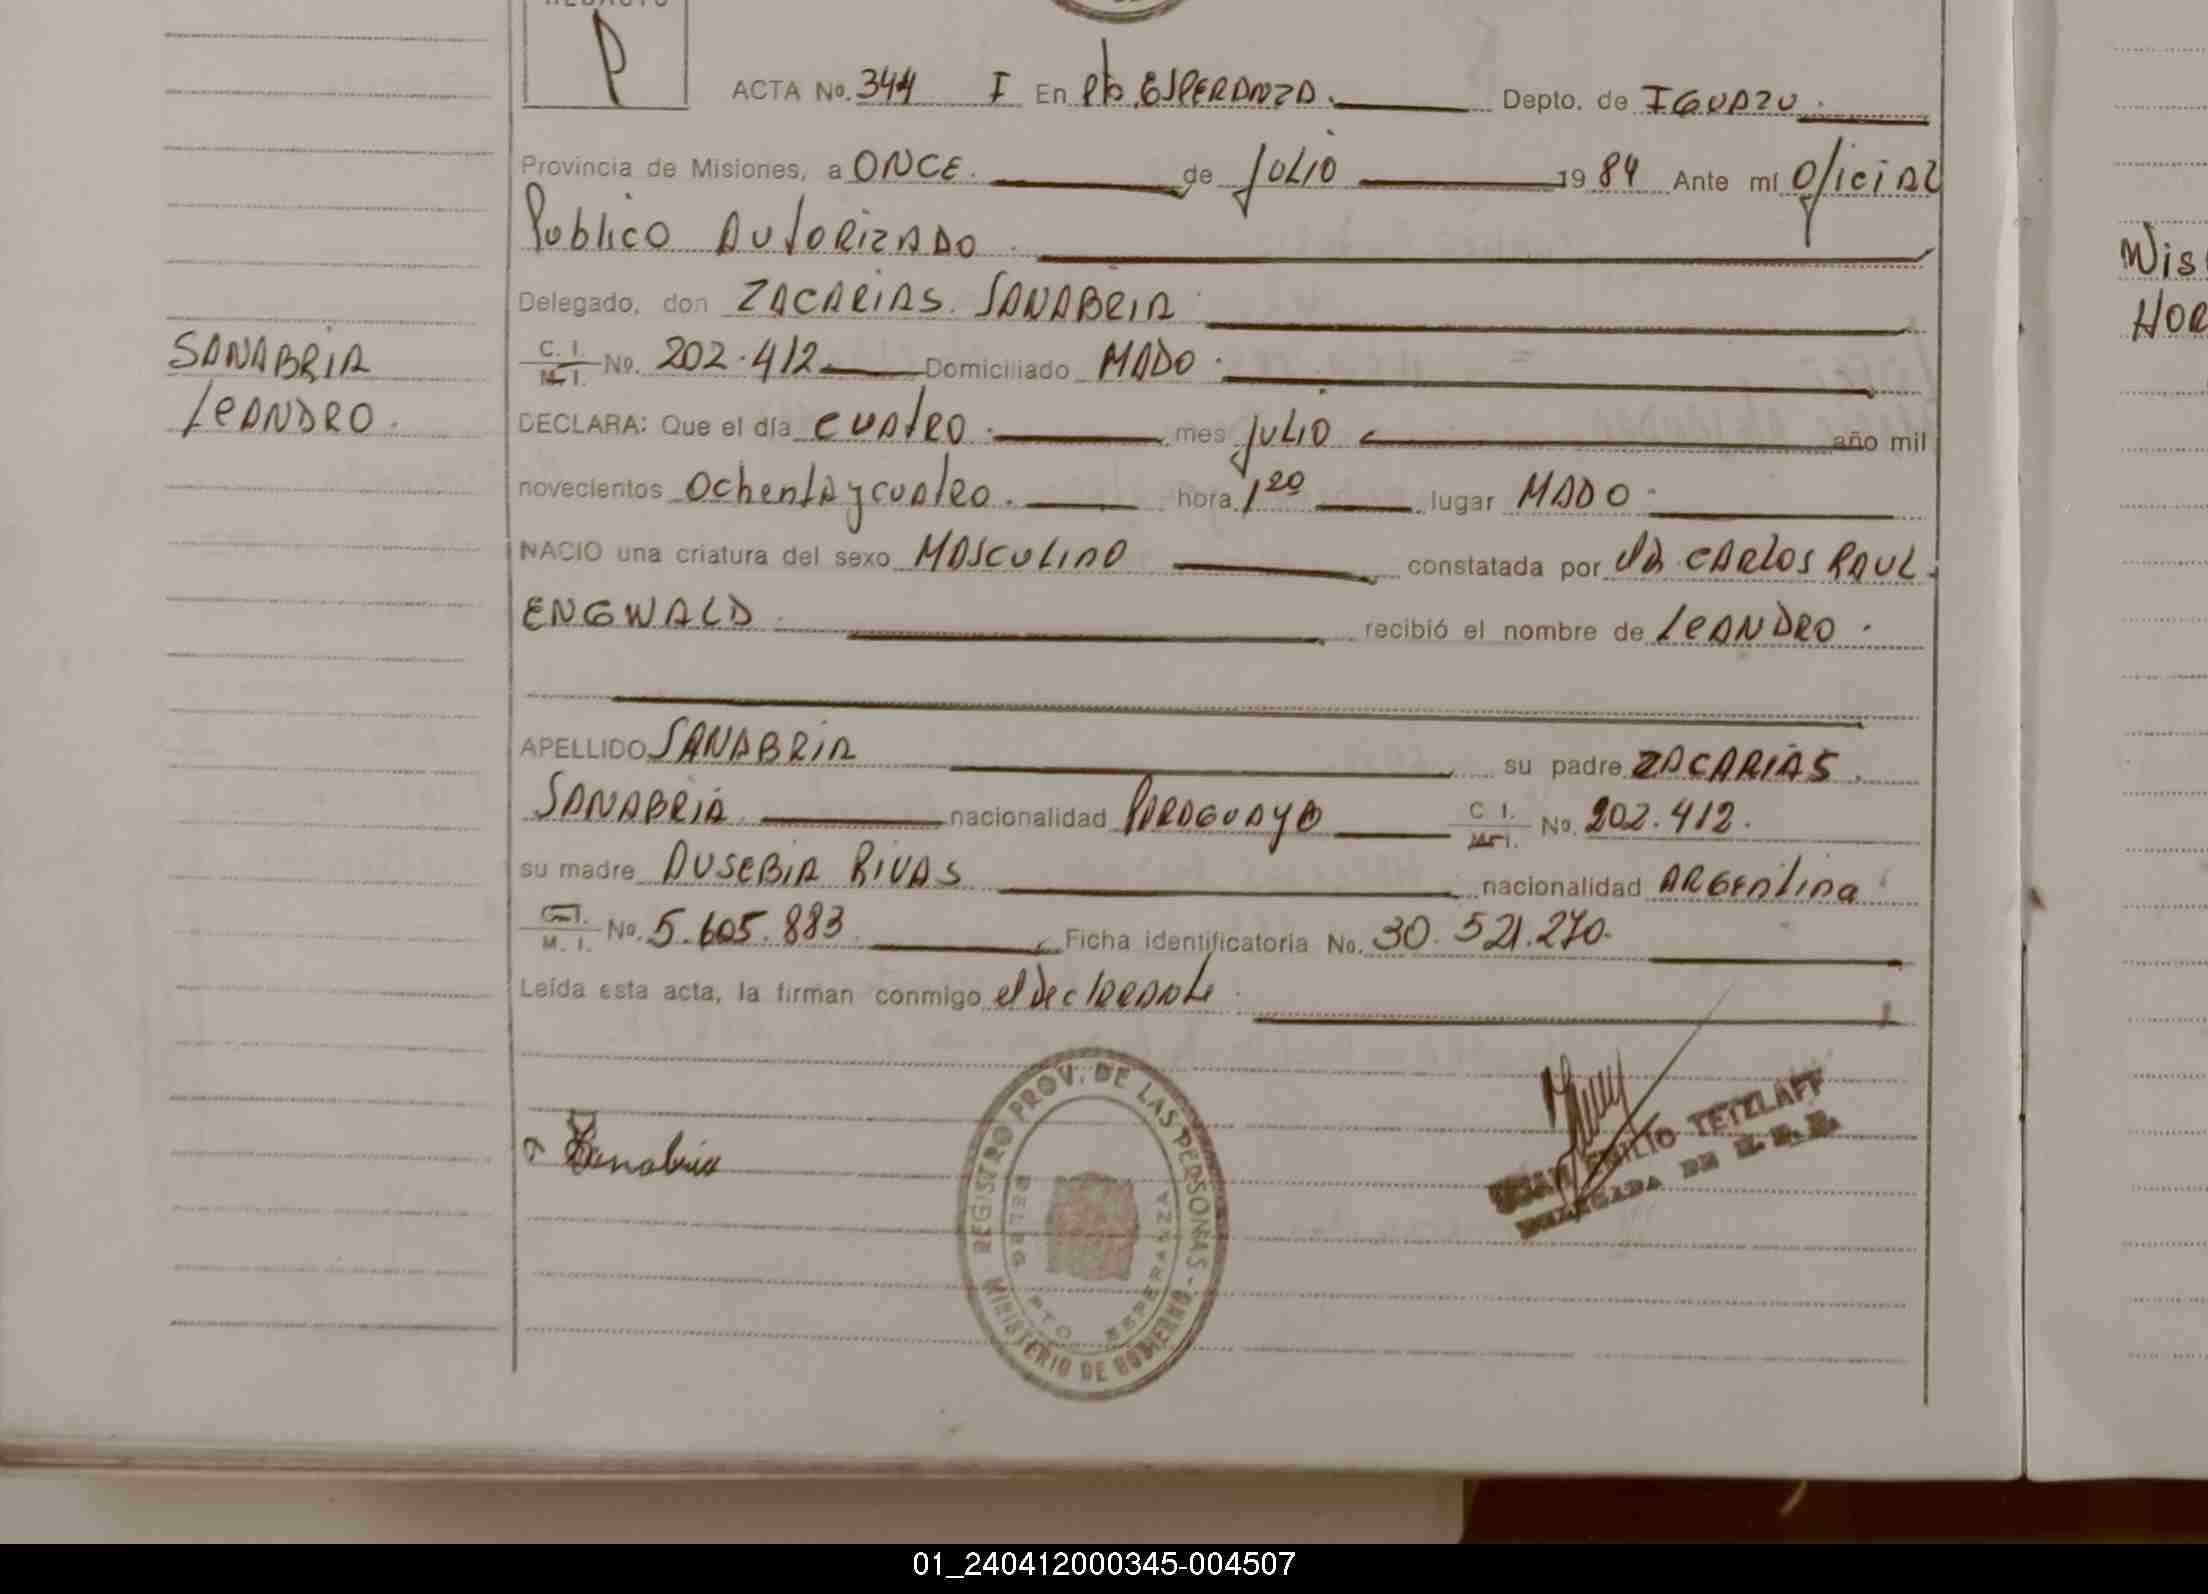 REDACTO
P
ACTA No. 344 I En Pto. ESPERANZA. Depto. de IGUAZU.
Provincia de Misiones, a ONCE. de JULIO 1984 Ante mí Oficial
Publico AUTORIZADO
Delegado, don ZACARIAS. SANABRIA
C. I.
M. I. No. 202.412 Domiciliado MADO.
SANABRIA
LEANDRO.
DECLARA: Que el día CUATRO. mes JULIO año mil
novecientos Ochenta y cuatro. hora 1 20 lugar MADO.
NACIO una criatura del sexo MASCULINO constatada por DR. CARLOS RAUL
ENGWALD recibió el nombre de LEANDRO.
APELLIDO SANABRIA su padre ZACARIAS.
SANABRIA nacionalidad PARAGUAYO C I. M. I. No. 202.412.
su madre AUSEBIA RIVAS nacionalidad ARGENTINA
C. I.
M. I. No. 5.605.883 Ficha identificatoria No. 30.521.270.
Leída esta acta, la firman conmigo el declarante.
Sanabria
REGISTRO PROV. DE LAS PERSONAS - MINISTERIO DE GOBIERNO
DELEG PTO ESPERANZA
JUAN EMILIO TETZLAFF
Wis
HOR
01_240412000345-004507